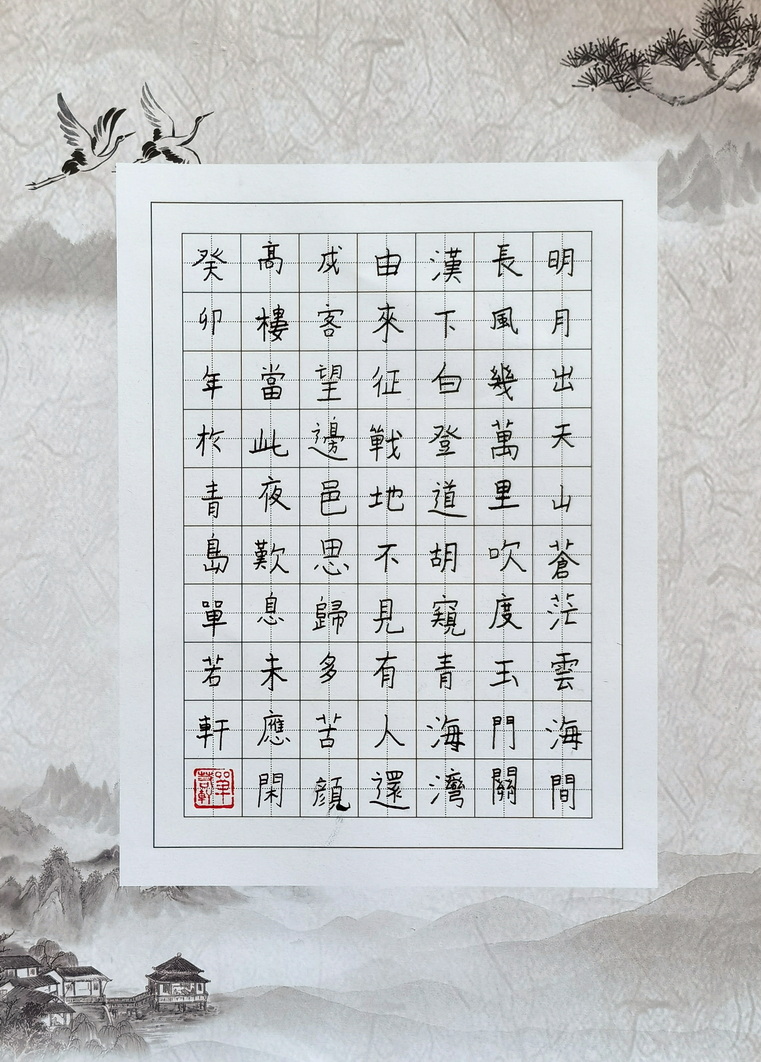 明月出天山蒼茫雲海間
長風幾萬里吹度玉門關
漢下白登道胡窺青海灣
由來征戰地不見有人還
戍客望邊邑思歸多苦顏
高樓當此夜歎息未應閑
癸卯年於青島單若軒
單若軒